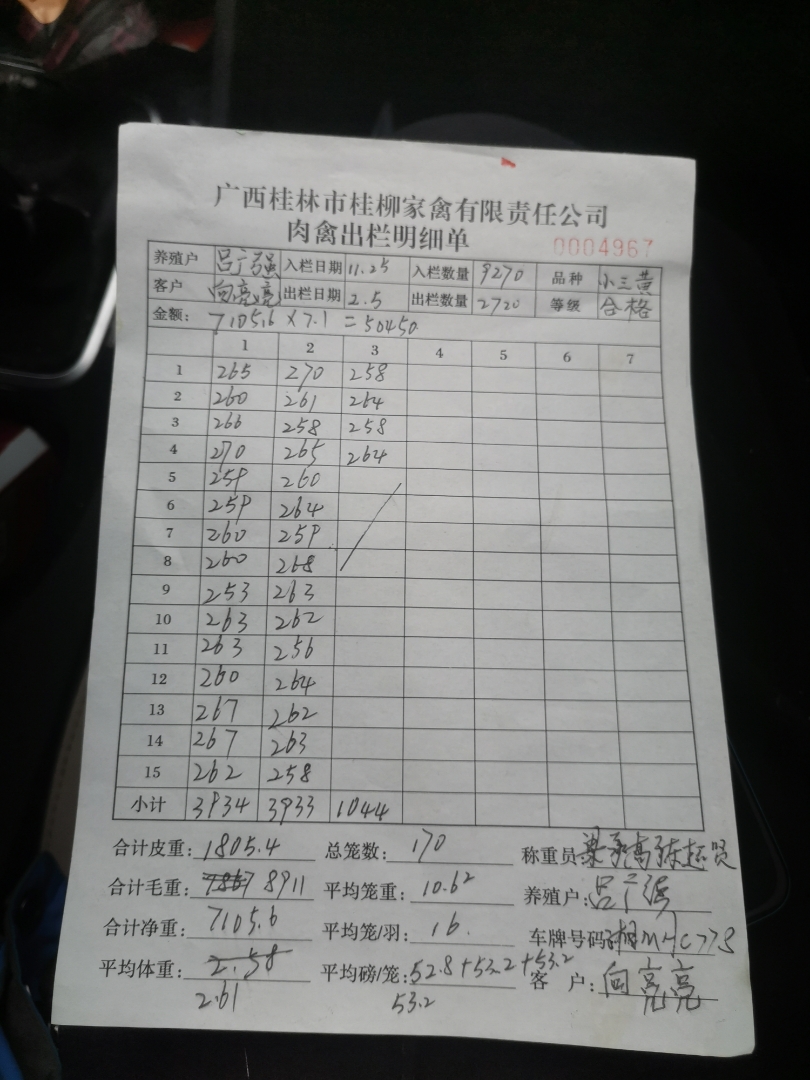 广西桂林市桂柳家禽有限责任公司
肉禽出栏明细单
0004967
养殖户 吕广强 入栏日期 11.25 入栏数量 9270 品种 小三黄
客户 向亮亮 出栏日期 2.5 出栏数量 2720 等级 合格
金额: 7105.6 × 7.1 = 50450
1 2 3 4 5 6 7
1 265 270 258
2 260 261 264
3 266 258 258
4 270 265 264
5 259 260
6 259 264
7 260 259
8 260 268
9 253 263
10 263 262
11 263 256
12 260 264
13 267 262
14 267 263
15 262 258
小计 3934 3933 1044
合计皮重: 1805.4 总笼数: 170 称重员
合计毛重: 8911 平均笼重: 10.62 养殖户: 吕广强
合计净重: 7105.6 平均笼/羽: 16. 车牌号码
平均体重: 2.58 平均磅/笼: 52.8+53.2+53.2 客 户: 向亮亮
2.61 53.2